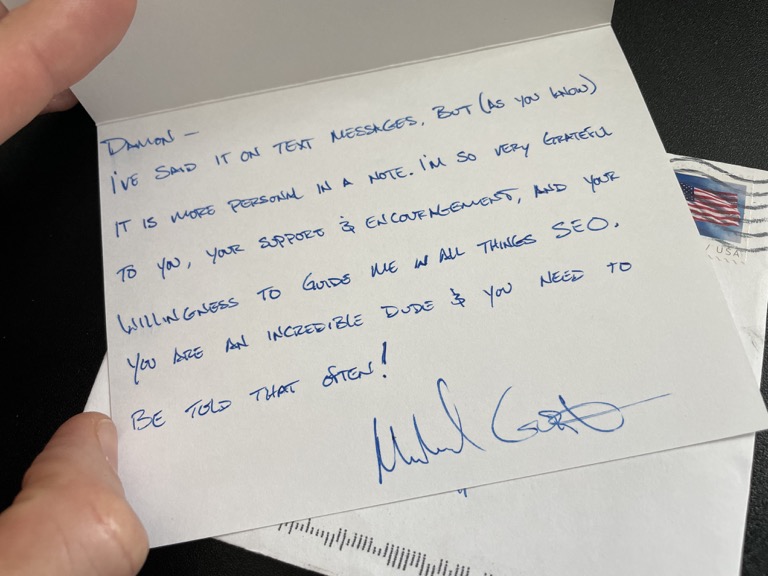 DAMON —
I'VE SAID IT ON TEXT MESSAGES, BUT (AS YOU KNOW)
IT IS MORE PERSONAL IN A NOTE. I'M SO VERY GRATEFUL
TO YOU, YOUR SUPPORT & ENCOURAGEMENT, AND YOUR
WILLINGNESS TO GUIDE ME IN ALL THINGS SEO.
YOU ARE AN INCREDIBLE DUDE & YOU NEED TO
BE TOLD THAT OFTEN!
USA